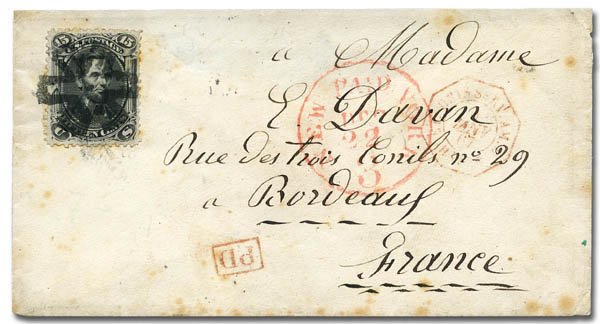 15 U.S. POSTAGE 15
à Madame
E Davan
Rue des trois Conils nº 29
à Bordeaux
France
NEW PAID YORK
DEC
22
3
PD